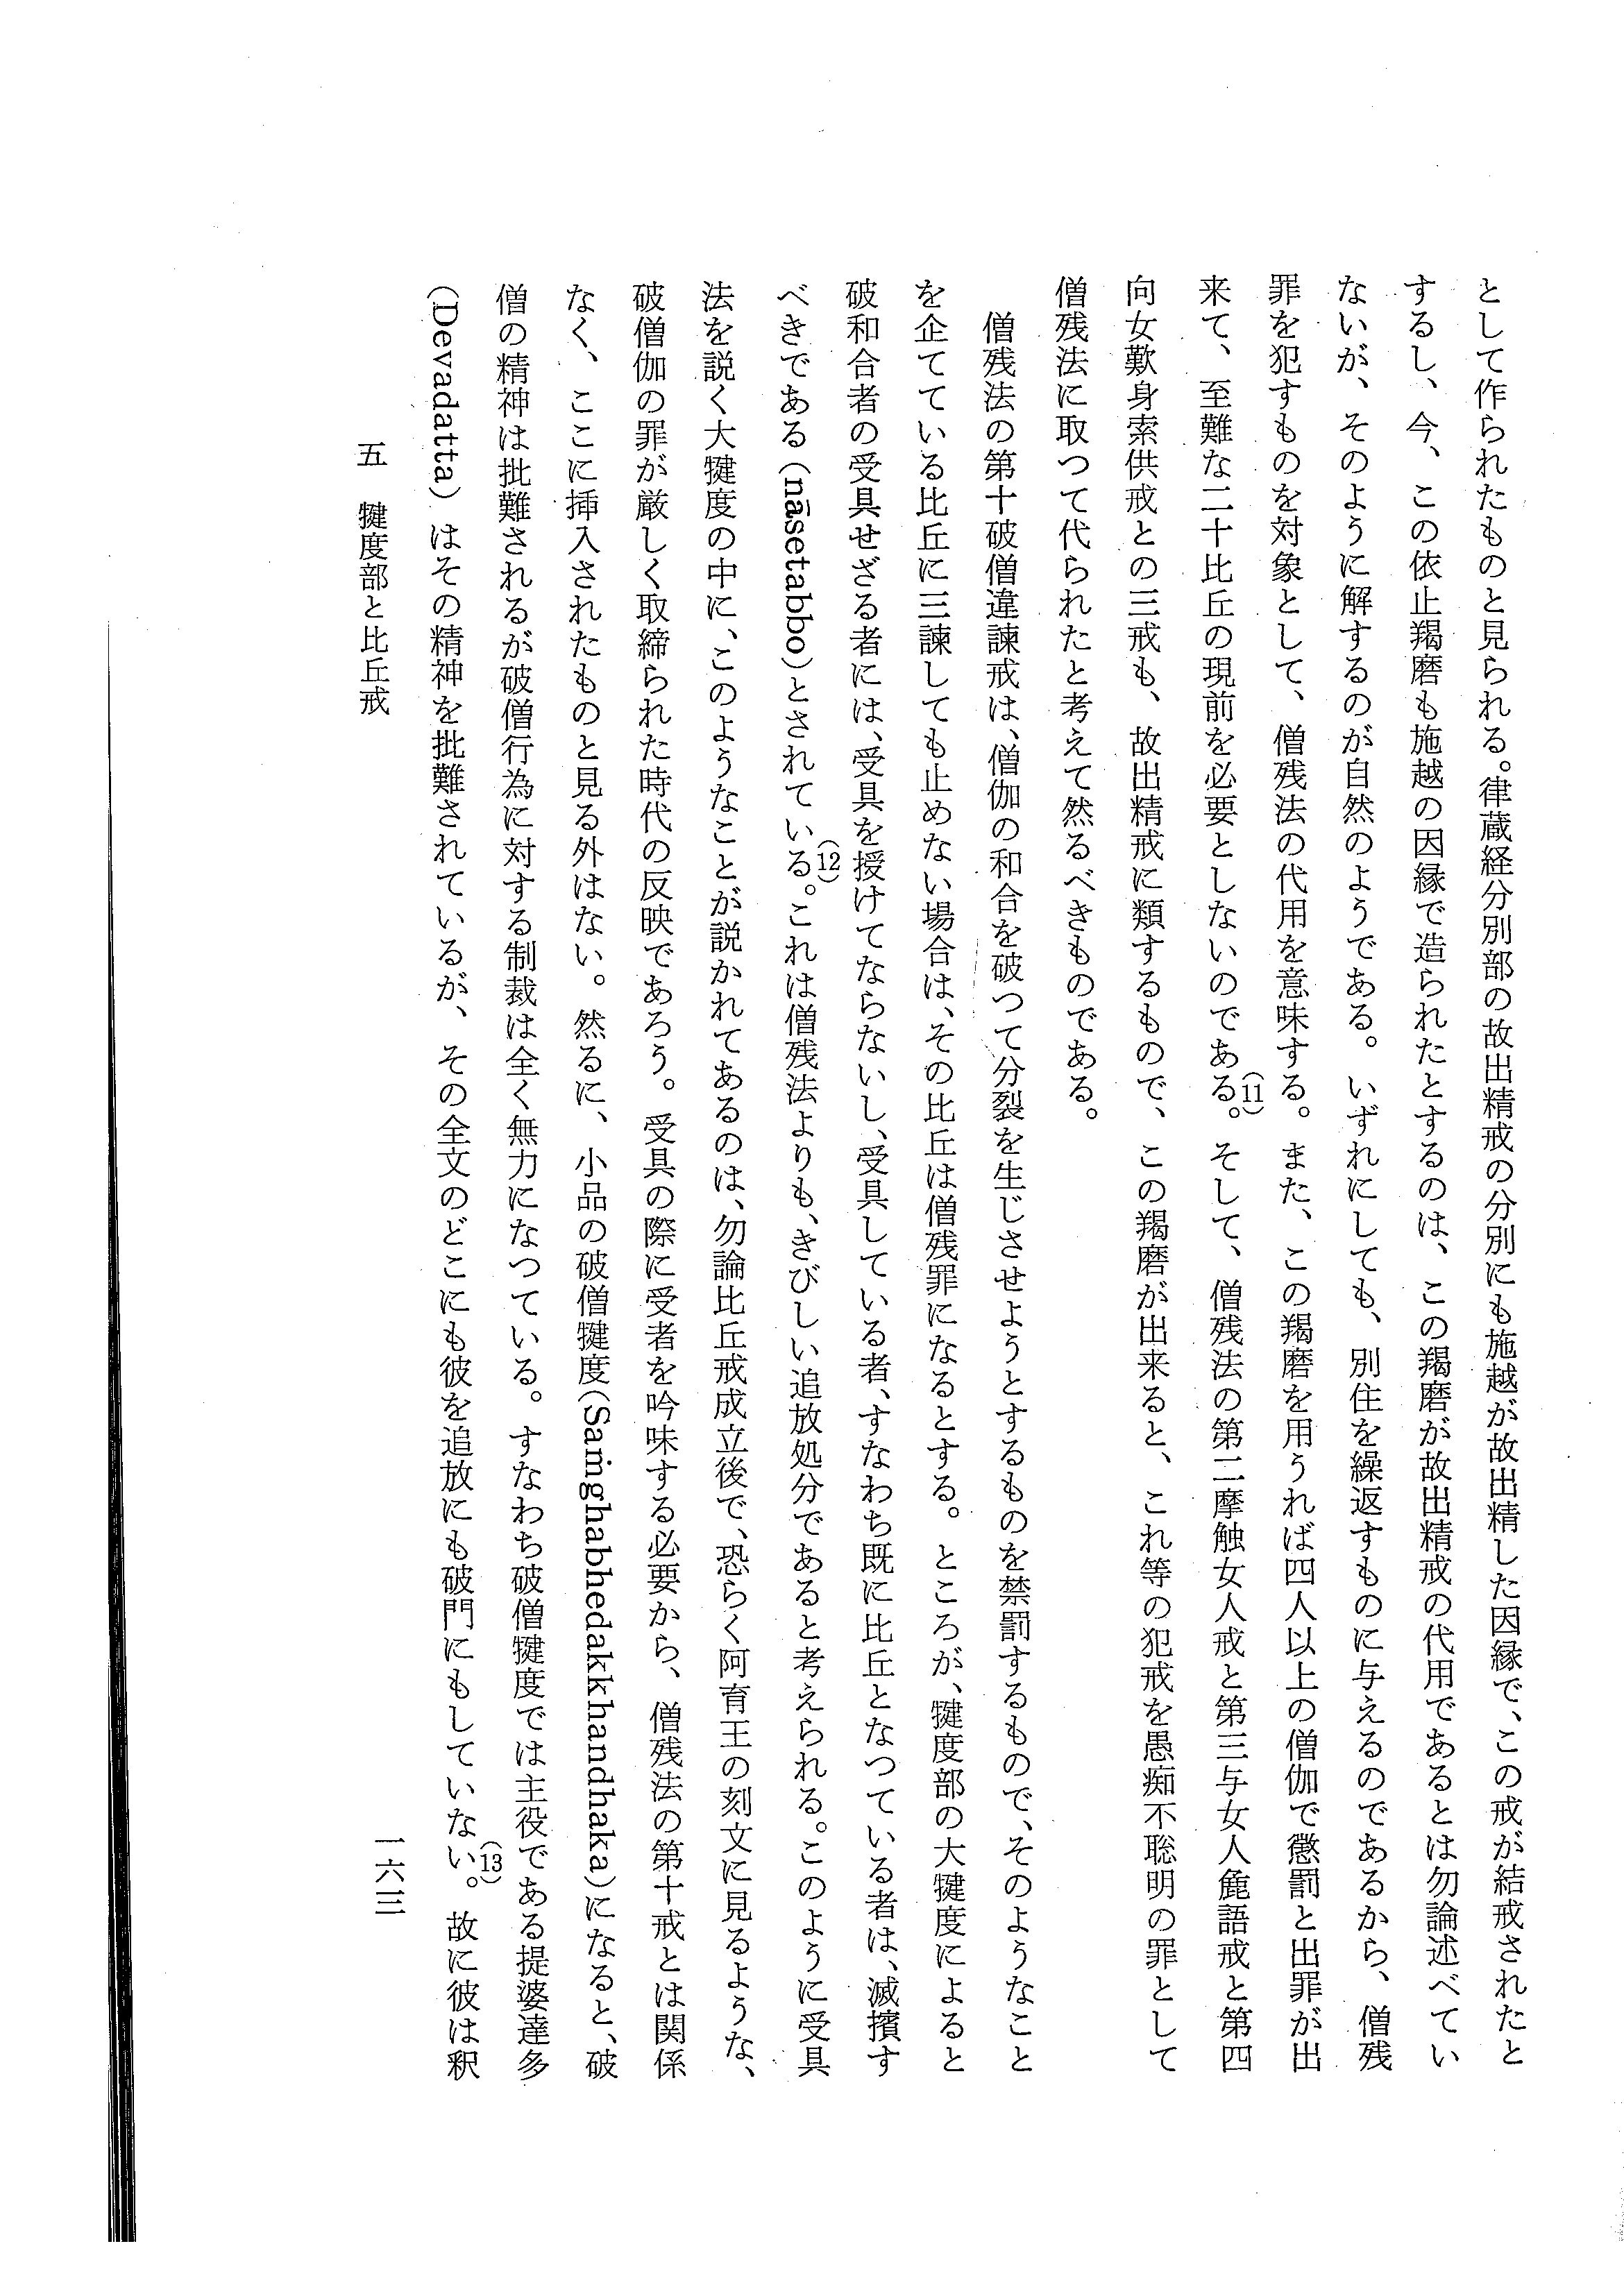 として作られたものと見られる。律蔵経分別部の故出精戒の分別にも施越が故出精した因縁で、この戒が結戒されたと
するし、今、この依止羯磨も施越の因縁で造られたとするのは、この羯磨が故出精戒の代用であるとは勿論述べてい
ないが、そのように解するのが自然のようである。いずれにしても、別住を繰返すものに与えるのであるから、僧残
罪を犯すものを対象として、僧残法の代用を意味する。また、この羯磨を用うれば四人以上の僧伽で懲罰と出罪が出
来て、至難な二十比丘の現前を必要としないのである。(11)そして、僧残法の第二摩触女人戒と第三与女人麁語戒と第四
向女歎身索供戒との三戒も、故出精戒に類するもので、この羯磨が出来ると、これ等の犯戒を愚痴不聡明の罪として
僧残法に取つて代られたと考えて然るべきものである。
僧残法の第十破僧違諫戒は、僧伽の和合を破つて分裂を生じさせようとするものを禁罰するもので、そのようなこと
を企てている比丘に三諫しても止めない場合は、その比丘は僧残罪になるとする。ところが、犍度部の大犍度によると
破和合者の受具せざる者には、受具を授けてならないし、受具している者、すなわち既に比丘となつている者は、滅擯す
べきである(nāsetabbo)とされている。(12)これは僧残法よりも、きびしい追放処分であると考えられる。このように受具
法を説く大犍度の中に、このようなことが説かれてあるのは、勿論比丘戒成立後で、恐らく阿育王の刻文に見るような、
破僧伽の罪が厳しく取締られた時代の反映であろう。受具の際に受者を吟味する必要から、僧残法の第十戒とは関係
なく、ここに挿入されたものと見る外はない。然るに、小品の破僧犍度(Saṁghabhedakkhandhaka)になると、破
僧の精神は批難されるが破僧行為に対する制裁は全く無力になつている。すなわち破僧犍度では主役である提婆達多
(Devadatta)はその精神を批難されているが、その全文のどこにも彼を追放にも破門にもしていない。(13)故に彼は釈
五　犍度部と比丘戒
一六三